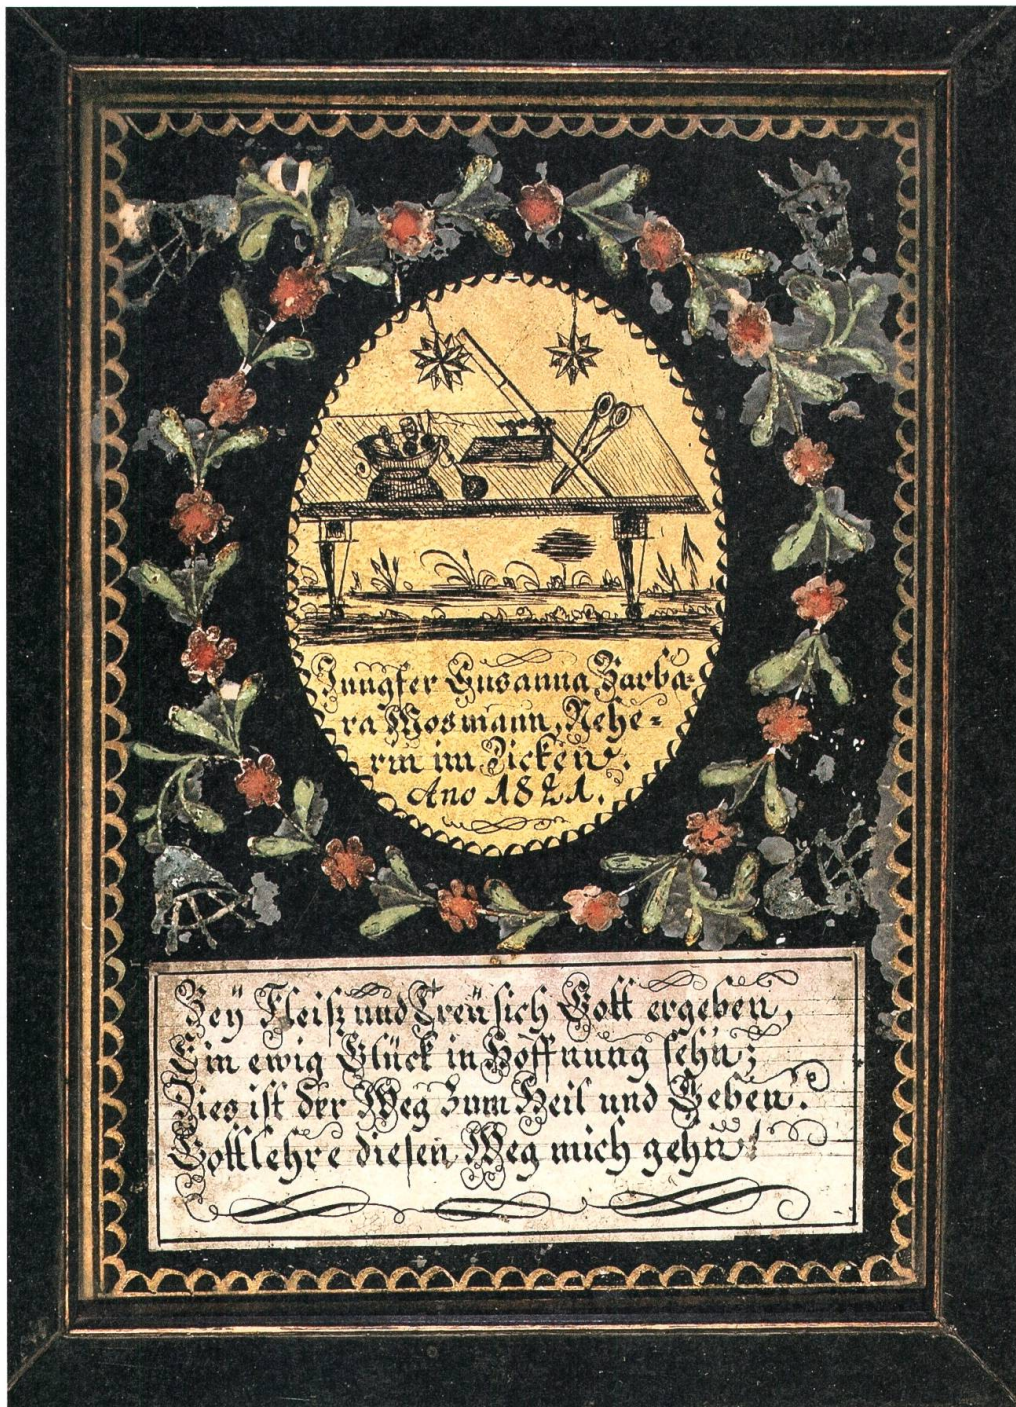 Jungfer Susanna, Barba=
ra Mosmann, Nehe=
rin im Dicken.
Ano 1821.
Beÿ Fleiß und Treü sich Gott ergeben,
Ein ewig Glück in Hoffnung sehn;
Dies ist der Weg zum Heil und Leben.
Gott lehre diesen Weg mich gehn!